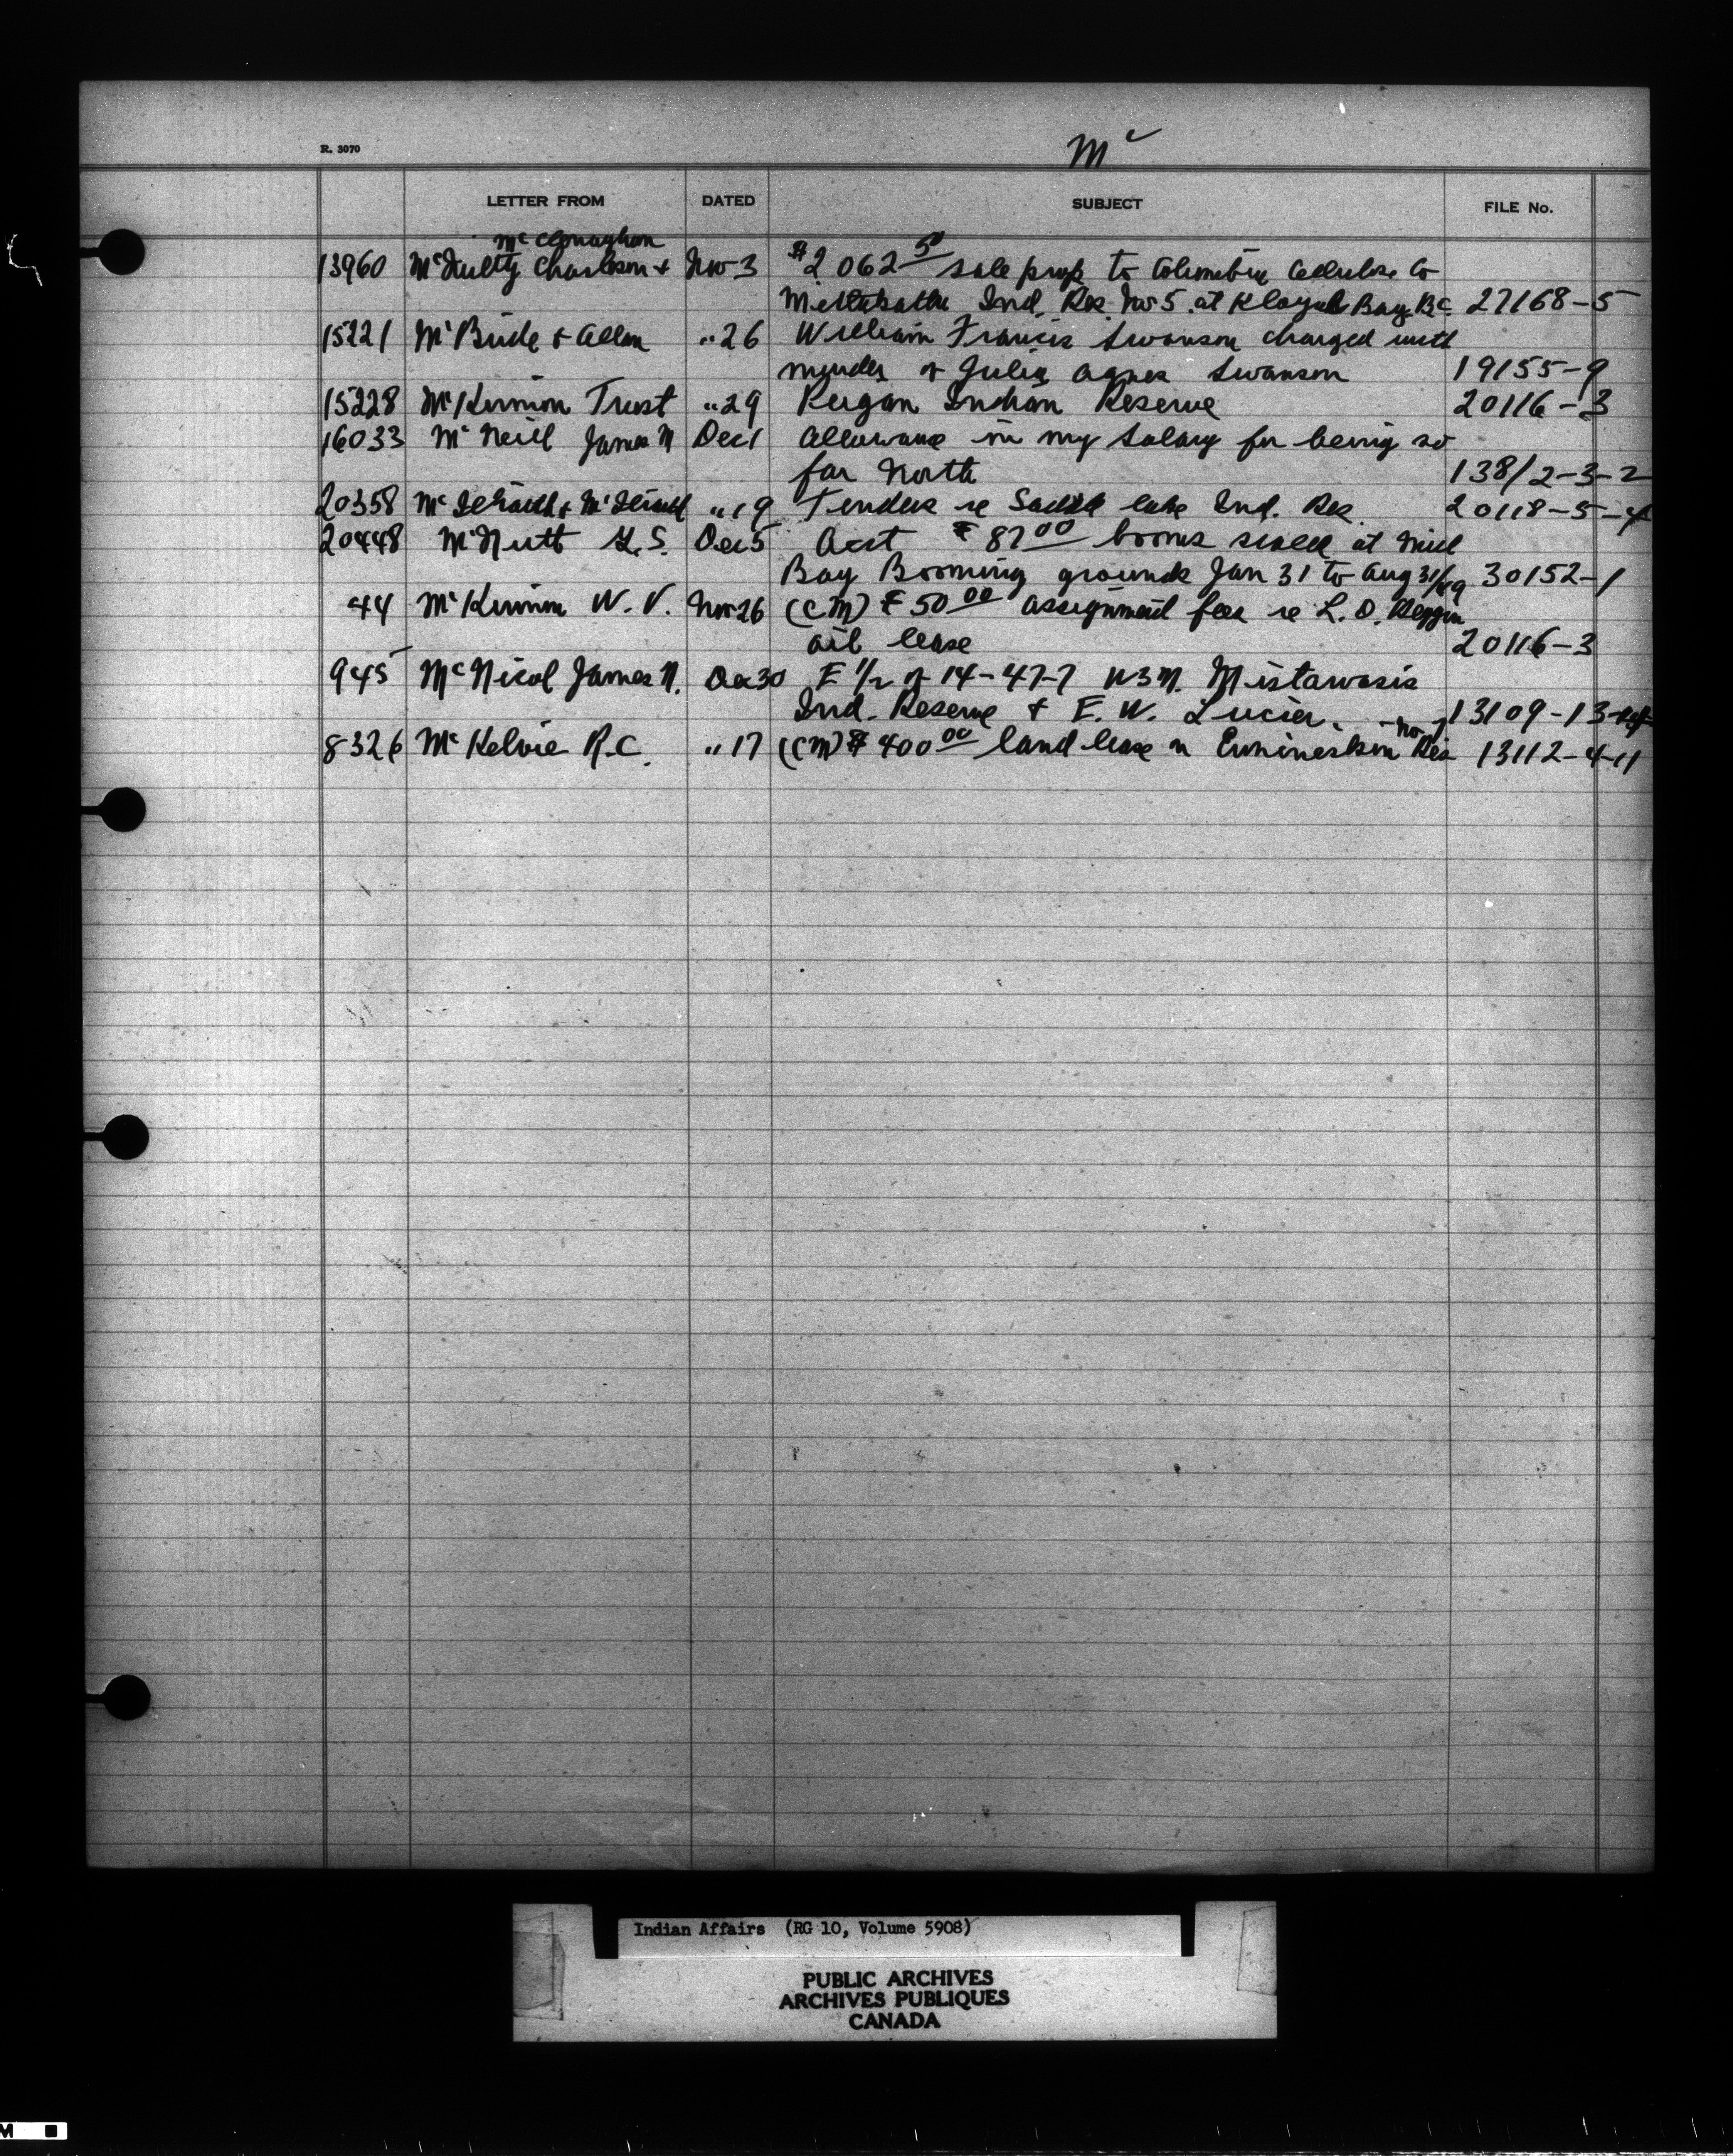 R. 3070
Mc
LETTER FROM DATED SUBJECT FILE No.
McConaghan
13960 McNulty Charlson + Nov 3 $2 062 50 sale prop to Columbia Cellulose Co
Metlakatla Ind. Res. No 5 at Kloyah Bay. B.C. 27168-5
15221 McBride + Allan " 26 William Francis Swanson charged with
murder of Julia Agnes Swanson 19155-9
15228 McKinnon Trust " 29 Peigan Indian Reserve 20116-3
16033 McNeill James N Dec 1 Allowance in my salary for being so
far North 138/2-3-2
20358 " 19 Tenders re Saddle Lake Ind. Res. 20118-5-4
20448 McNutt G.S. Dec 5 Acct $87 00 booms scaled at Mill
Bay Booming grounds Jan 31 to Aug 31/49 30152-1
44 McKinnon W. V. Nov 26 (CM) $50 00 assignment fees re L. O.
oil lease 20116-3
945 McNicol James N. Dec 30 E 1/2 of 14-47-7 W3M. Mistawasis
Ind. Reserve + E. W. Lucier. 13109-13
- No-1
8326 McKelvie R.C. " 17 (CM) $400 00 land lease on Ermineskin Res 13112-4-11
Indian Affairs (RG 10, Volume 5908)
PUBLIC ARCHIVES
ARCHIVES PUBLIQUES
CANADA